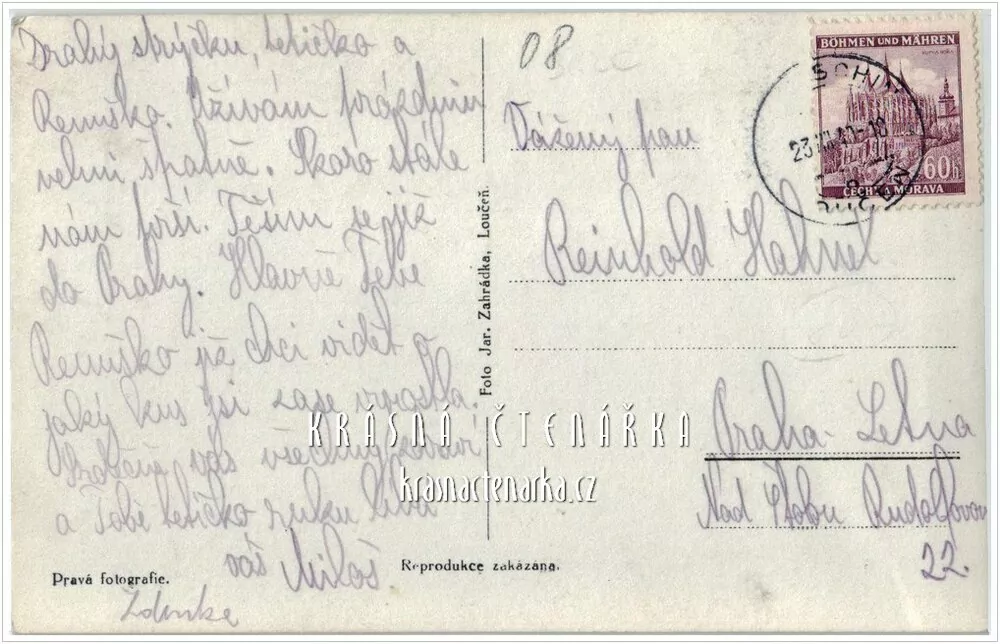 Drahý strýčku, tetičko a
Remuško. Užívám prázdnin
velmi špatně. Skoro stále
nám prší. Těším se již
do Prahy. Hlavně Tebe
Remuško již chci vidět o
jaký kus jsi zase vyrostla.
vás všechny zdraví
a Tobě tetičko ruku líbá
váš Miloš.
Zdenka
Pravá fotografie.
Foto Jar. Zahrádka, Loučeň.
Reprodukce zakázána.
08
BÖHMEN UND MÄHREN
60h
ČECHY A MORAVA
Vážený pan
Reinhold Hahnel
Praha - Letna
Nad Štolou Rudolfovou
22.
KRÁSNÁ ČTENÁŘKA
krasnactenarka.cz